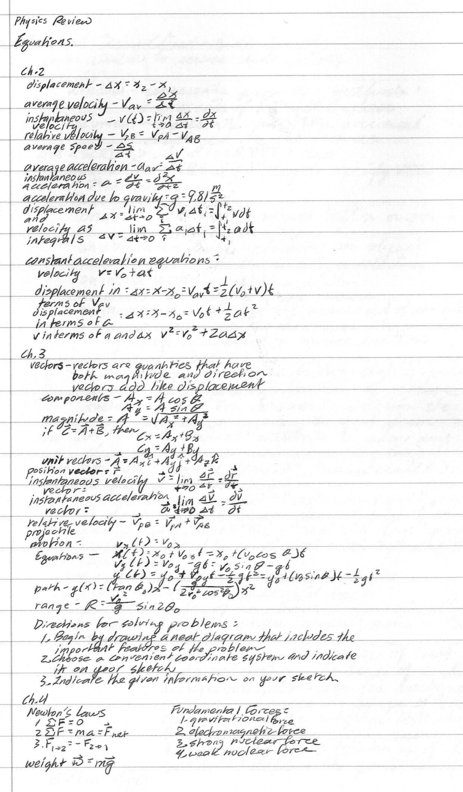 Physics Review
Equations.
Ch.2
displacement - Δx = x₂ - x₁
average velocity - Vav = Δx/Δt
instantaneous velocity - v(t) = lim Δt→0 Δx/Δt = dx/dt
relative velocity - VpB = VpA - VAB
average speed - Δs/Δt
average acceleration - aav = ΔV/Δt
instantaneous acceleration = a = dv/dt = d²x/dt²
acceleration due to gravity = g = 9.81 m/s²
displacement Δx = lim Δt→0 Σ vᵢΔtᵢ = ∫t₁t₂ vdt
and
velocity as Δv = lim Δt→0 Σ aᵢΔtᵢ = ∫t₁t₂ adt
integrals
constant acceleration equations:
velocity v = v₀ + at
displacement in : Δx = x - x₀ = Vav t = 1/2 (v₀ + v)t
terms of Vav
displacement : Δx = x - x₀ = v₀t + 1/2 at²
in terms of a
v in terms of a and Δx v² = v₀² + 2aΔx
Ch.3
vectors - vectors are quantities that have
both magnitude and direction
vectors add like displacement
components - Ax = A cos θ
Ay = A sin θ
magnitude = A = √Ax² + Ay²
if C⃗ = A⃗ + B⃗, then
Cx = Ax + Bx
Cy = Ay + By
unit vectors - A⃗ = Axî + Ayĵ + Azk̂
position vector = r⃗
instantaneous velocity v⃗ = lim Δt→0 Δr⃗/Δt = dr⃗/dt
vector:
instantaneous acceleration a⃗ = lim Δt→0 Δv⃗/Δt = dv⃗/dt
vector:
relative velocity - V⃗pB = V⃗pA + V⃗AB
projectile
motion - vx(t) = v₀x
Equations - x(t) = x₀ + v₀xt = x₀ + (v₀cos θ)t
vy(t) = v₀y - gt = v₀ sin θ - gt
y(t) = y₀ + v₀yt - 1/2 gt² = y₀ + (v₀sin θ)t - 1/2 gt²
path - y(x) = (tan θ₀)x - (g/2v₀²cos²θ₀)x²
range - R = v₀²/g sin 2θ₀
Directions for solving problems:
1. Begin by drawing a neat diagram that includes the
important features of the problem
2. Choose a convenient coordinate system and indicate
it on your sketch
3. Indicate the given information on your sketch
Ch.4
Newton's Laws
1 ΣF⃗ = 0
2 ΣF⃗ = ma = F⃗net
3. F⃗1→2 = -F⃗2→1
weight w⃗ = mg⃗
Fundamental Forces:
1. gravitational force
2. electromagnetic force
3. strong nuclear force
4. weak nuclear force